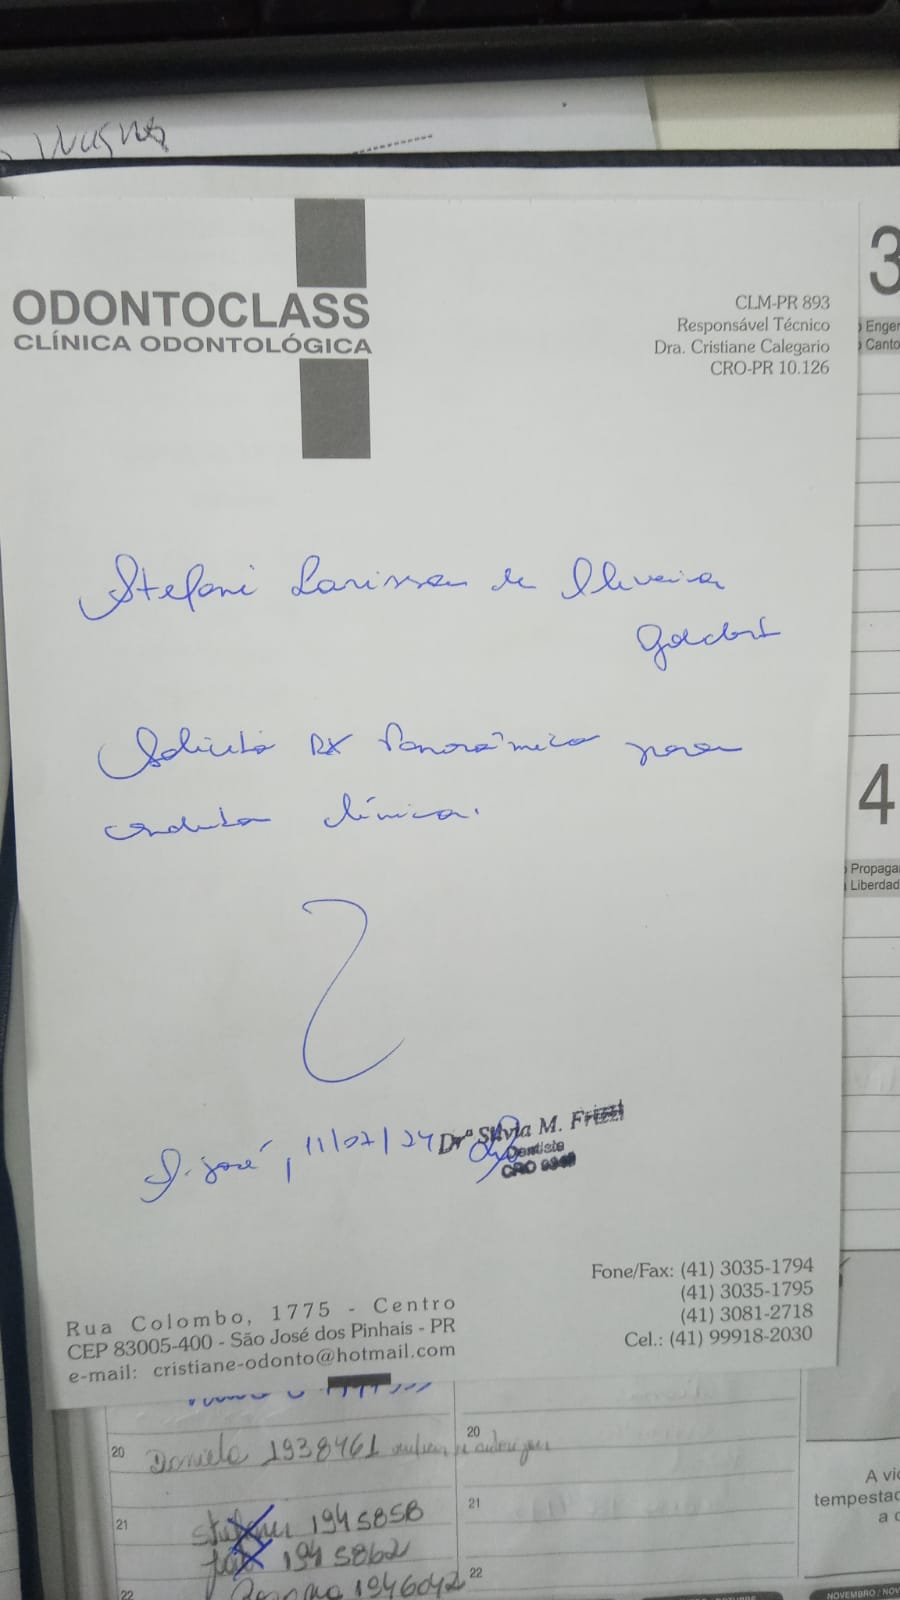 ODONTOCLASS
CLÍNICA ODONTOLÓGICA
CLM-PR 893
Responsável Técnico
Dra. Cristiane Calegario
CRO-PR 10.126
Stefani Larissa de Oliveira
Solicito RX Panorâmico para
conduta clínica.
S. José, 11/07/24
Drª Silvia M. Frizzi
Dentista
CRO
Rua Colombo, 1775 - Centro
CEP 83005-400 - São José dos Pinhais - PR
e-mail: cristiane-odonto@hotmail.com
Fone/Fax: (41) 3035-1794
(41) 3035-1795
(41) 3081-2718
Cel.: (41) 99918-2030
3
Enger
Canto
4
Propaga
Liberdad
20
Daniela 1938461
20
21
1945858
1945862
21
22
1946042
22
A vi
tempestad
a c
NOVEMBRO / NOV